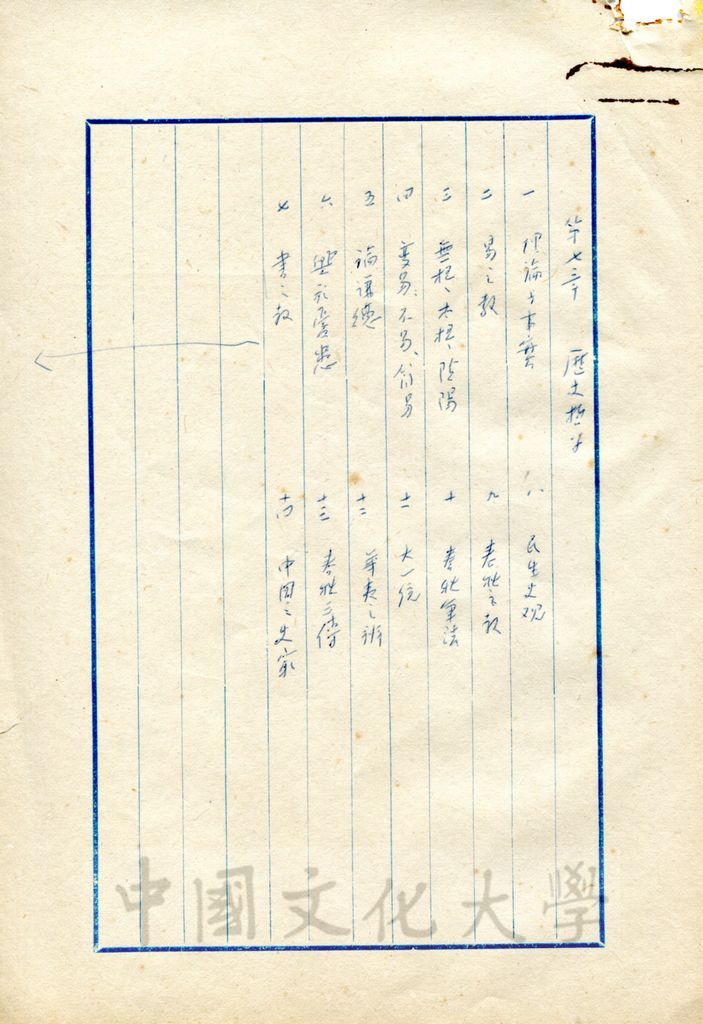 第七章 歷史哲学
一 理論与事實
二 易之教
三 無極、太極、陰陽
四 变易、不易、簡易
五 論謙德
六 與於憂患
七 書之教
八 民生史观
九 春秋之教
十 春秋筆法
十一 大一統
十二 華夷之辨
十三 春秋三傳
十四 中国之史家
中國文化大學